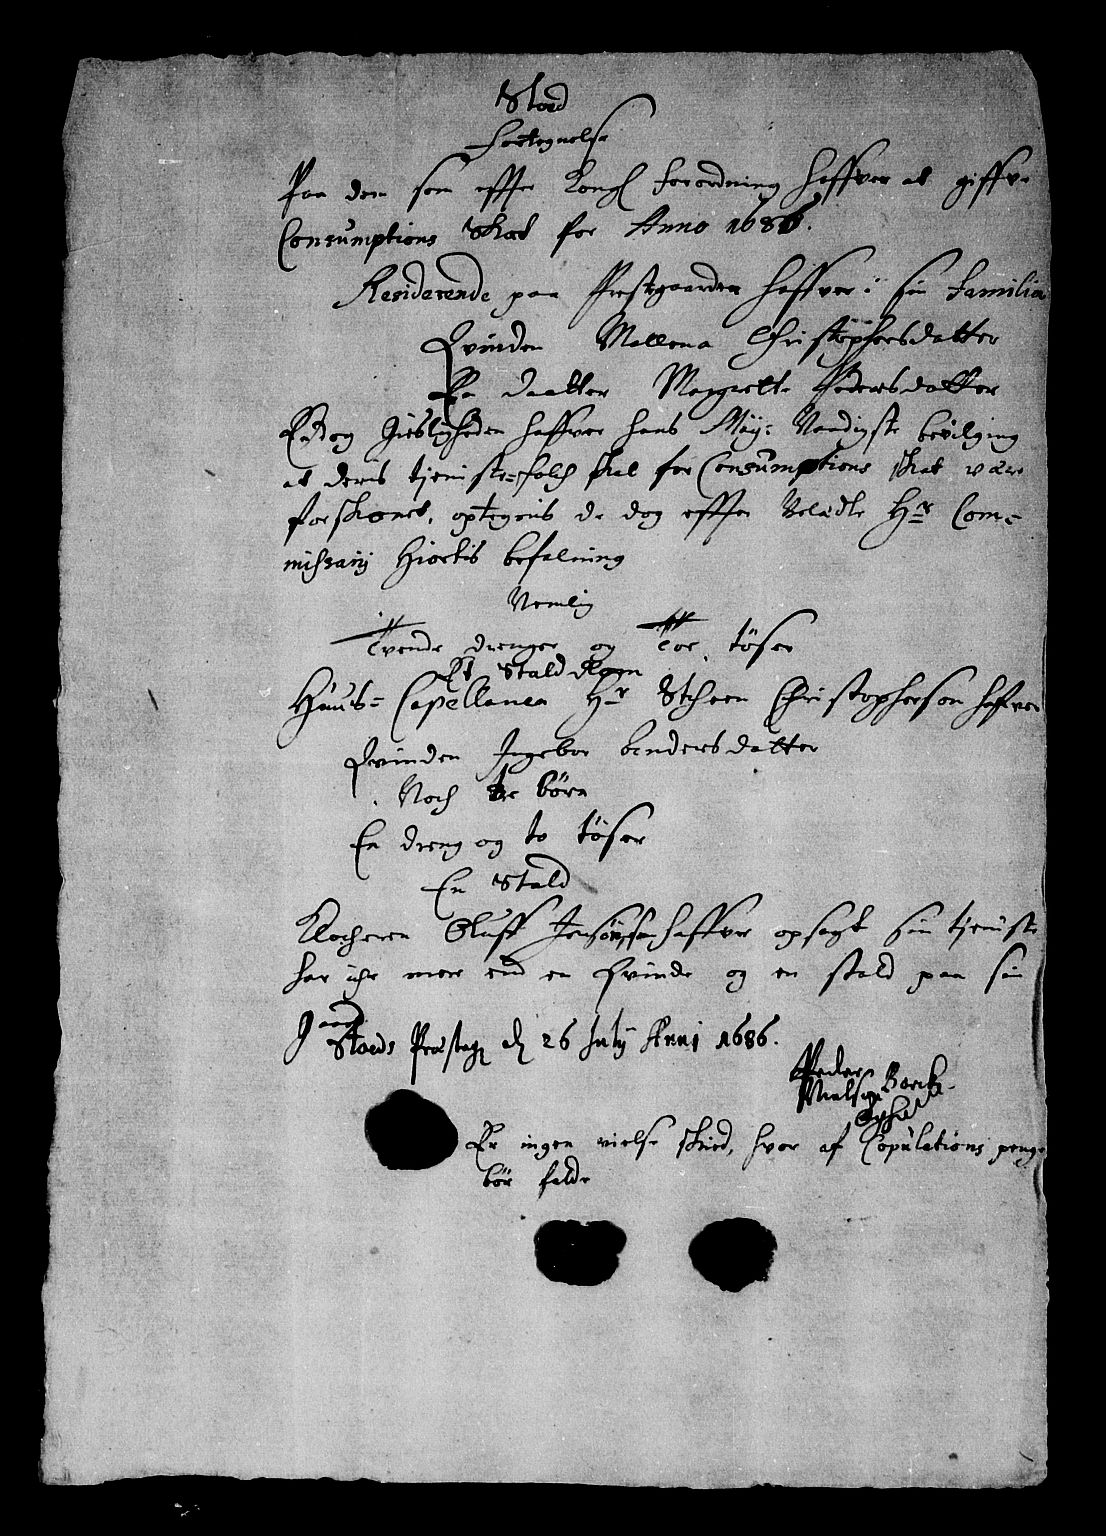 Stord
Fortegnelse
Paa dem som effter Kongl forordning haffver at giffve
Consumptions Skat for Anno 1686.
Residerende paa Prestegaarden haffver i sin Familia
Qvinden Mallena Christophersdatter
En daatter Margrette Pedersdatter
Endog Giesligheden haffver hans May: Naadigste bevilging
at deris tjeniste=folch skal for Consumptions skat være
forskonet, optegnis de dog effter Velædle Hr Com=
missarij Hiortis befalning
Nemlig
Tvende drenger og Toe tøser
Et Stald
Huus= Capellanen Hr Christopherson hafver
Qvinden Ingebor datter
Noch tre børn
En dreng og to tøser
En Stald
Klocheren Oluff haffver opsagt sin tjeniste
har iche meer end en Qvinde og en stald paa sin
Gaard
Stords Præsteg d 26 July Anni 1686.
Peder
Nielsøn
Er ingen vielse skied, hvor af Copulations penge
bør falde